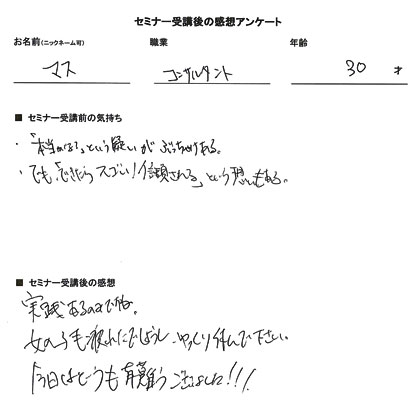 セミナー受講後の感想アンケート
お名前(ニックネーム可) 職業 年齢
マス コンサルタント 30 才
■ セミナー受講前の気持ち
・「本当かな?」という疑いがぶっちゃけある。
・でも「できたらスゴい!信頼される」という思いもある。
■ セミナー受講後の感想
実践あるのみですね。
女の子も疲れたでしょう、ゆっくり休んで下さい。
今日はどうも有難うございました!!!